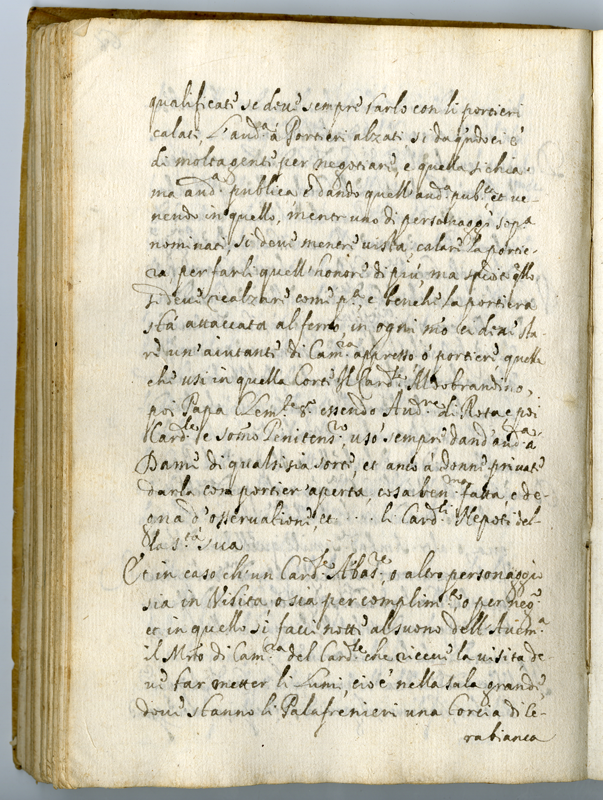 qualificati se deve sempre farlo con li portieri
calati, L'aud.ª á Portieri alzati si da qñdo ci é
di molta gente per negotiare, e quella si chia-
ma aud.ª publica e dando quell'aud.ª pub.ca et ve-
nendo in quello, mentre uno di personaggi sop.ª
nominati si deve mentre vista calare la portie-
ra per farli quell'honore di piu ma
si deve realzare come p.ª e benche la portiera
sta attaccata al ferro in ogni mo ci deve sta-
re un'aiutante di Cam.ª appresso ó portiere, quelli
che usi in quella Corte Il Card.le Aldobrandino,
poi Papa Clem.te 8.º essendo Aud.re di Rota e poi
Card.le e som̃o Penitenz.ro usó sempre dand'aud.ª a
Dame di qualsisia sorte, et anco á donne private
darla con portier'aperta, cosa ben.mo fatta, e de-
gna d'osservatione, et . . . li Card.li Nepoti del-
la S.tá sua
Et in caso ch'un Card.le Abas.re, o altro personaggio
sia in Visita, o sia per complim.to, o per neg.º
et in quello si facci notte al suono dell'Avem.ª
il Mrõ di Cam.ra del Card.le che riceve la visita de-
ve far metter li Lumi, cioé nella sala grande,
dove stanno li Palafrenieri una Torcia di Ce-
ra bianca